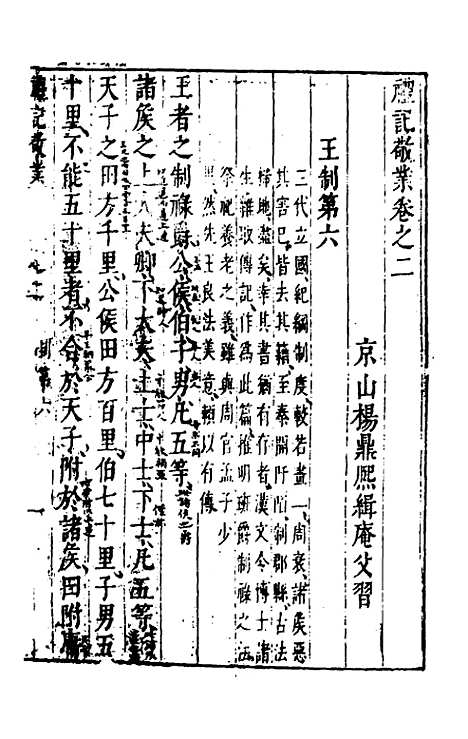 禮記敬業卷之二
京山楊鼎熙緝庵父習
王制第六
三代立國紀綱制度較若畫一周衰諸侯惡
其害巳皆去其籍至秦開阡陌制郡縣古法
掃地盡矣幸其書猶有存者漢文令博士諸
生雜取傳記作為此篇推明班爵制祿之
祭祀養老之義雖與周官孟子少
異然先王良法美意頼以有傳
王者之制祿爵公侯伯子男凡五等
諸侯之上大夫卿下大夫上士中士下士凡五等
天子之田方千里公侯田方百里伯七十里子男五
十里不能五十里者不合於天子附於諸侯田附庸
禮記敬業
王制第六